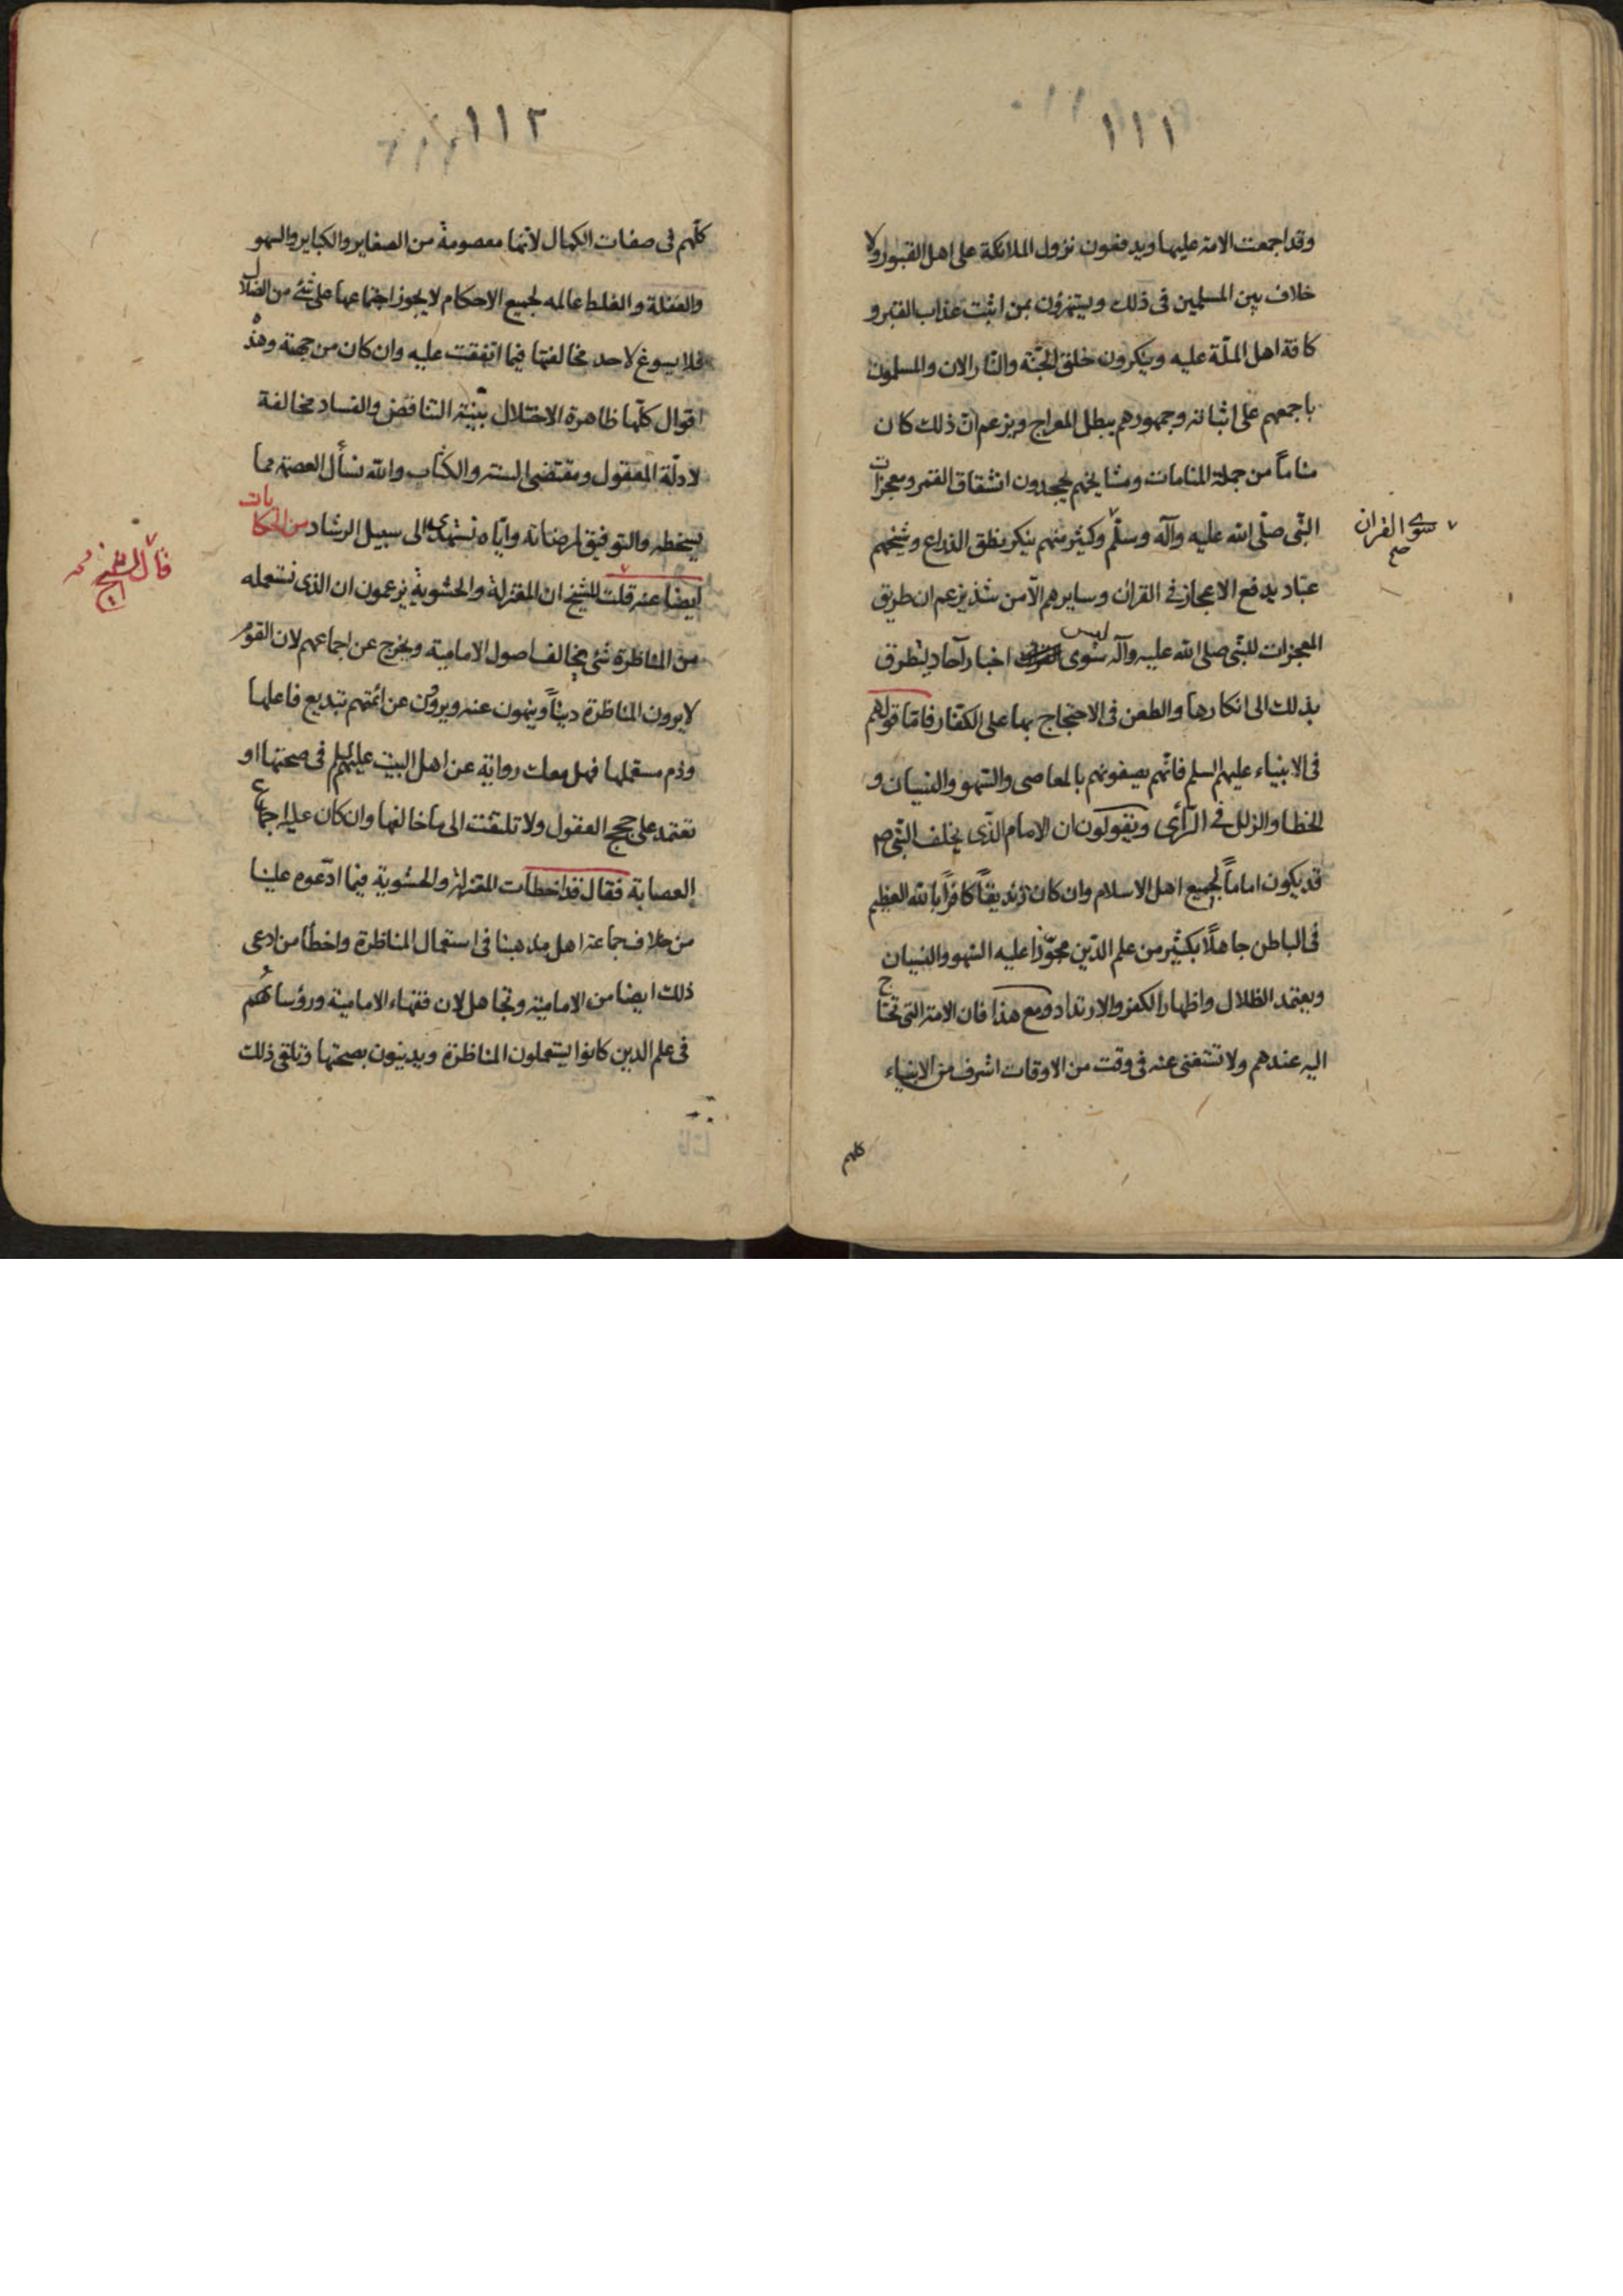 ١١١
وقد اجمعت الامة عليها ويدفعون نزول الملائكة على اهل القبور ولا
خلاف بين المسلمين فى ذلك ويستهزؤن بمن اثبت عذاب القبر و
كافة اهل الملّة عليه وينكرون خلق الجنّة والنّار الان والمسلمون
باجمعهم على اثباته وجمهورهم يبطل المعراج ويزعم انّ ذلك كان
مناماً من جملة المنامات ومشايخهم يجحدون انشقاق القمر ومعجزات
النّبى صلّى الله عليه وآله وسلّم وكثير منهم ينكر نطق الذراع وشيخهم
سوى القران صح
عبّاد يدفع الاعجاز فى القران وسايرهم الّا من شذ يزعم ان طريق
المعجزات للنبّى صلى الله عليه وآله سوى ليس اخبار آحاد ليتطرق
بذلك الى انكارها والطعن فى الاحتجاج بها على الكفّار فامّا قولهم
فى الانبياء عليهم السلم فانّهم يصفونهم بالمعاصى والسّهو والنسيان و
الخطا والزلل فى الرّأى ويقولون ان الامام الذّى يخلف النّبى ص
قد يكون اماماً لجميع اهل الاسلام وان كان زنديقاً كافراً بالله العظيم
فى الباطن جاهلًا بكثير من علم الدّين مجوّزا عليه السّهو والنسيان
ويعتمد الظلال واظهار الكفر والارتداد ومع هذا فان الامة التى تحتاج
اليه عندهم ولا تستغنى عنه فى وقت من الاوقات اشرف من الانبياء
كلهم
١١٢
كلّهم فى صفات الكمال لأنها معصومة من الصغاير والكباير والسهو
والغفلة والغلط عالمه لجميع الاحكام لا يجوز اجتماعها على شئ من الضلال
فلا يسوغ لاحد مخالفتها فيما اتفقت عليه وان كان من جهة وهذه
اقوال كلّها ظاهرة الاختلال بيّنة التناقض والفساد مخالفة
لادلّة العقول ومقتضى السنة والكتاب والله نسأل العصمة مما
يسخطه والتوفيق لمرضاته وايّاه نستهدى الى سبيل الرشاد من الحكايات
قال الشيخ
ايضا عنه قلت للشيخ ان المعتزلة والحشوية يزعمون ان الذى نستعمله
من المناظرة شئ يخالف اصول الامامية ويخرج عن اجماعهم لان القوم
لا يرون المناظرة ديناً وينهون عنه ويروون عن ائمتهم تبديع فاعلها
وذم مستعملها فهل معك رواية عن اهل البيت عليهم السلم فى صحتها او
تعتمد على حجج العقول ولا تلتفت الى ما خالفها وان كان عليه اجماع
العصابة فقال قد اخطأت المعتزلة والحشوية فيما ادّعوه علينا
من خلاف جماعة اهل مذهبنا فى استعمال المناظرة واخطأ من ادعى
ذلك ايضا من الامامية وتجاهل لان فقهاء الامامية ورؤسائهم
فى علم الدين كانوا يستعملون المناظرة ويدينون بصحتها وتلقى ذلك